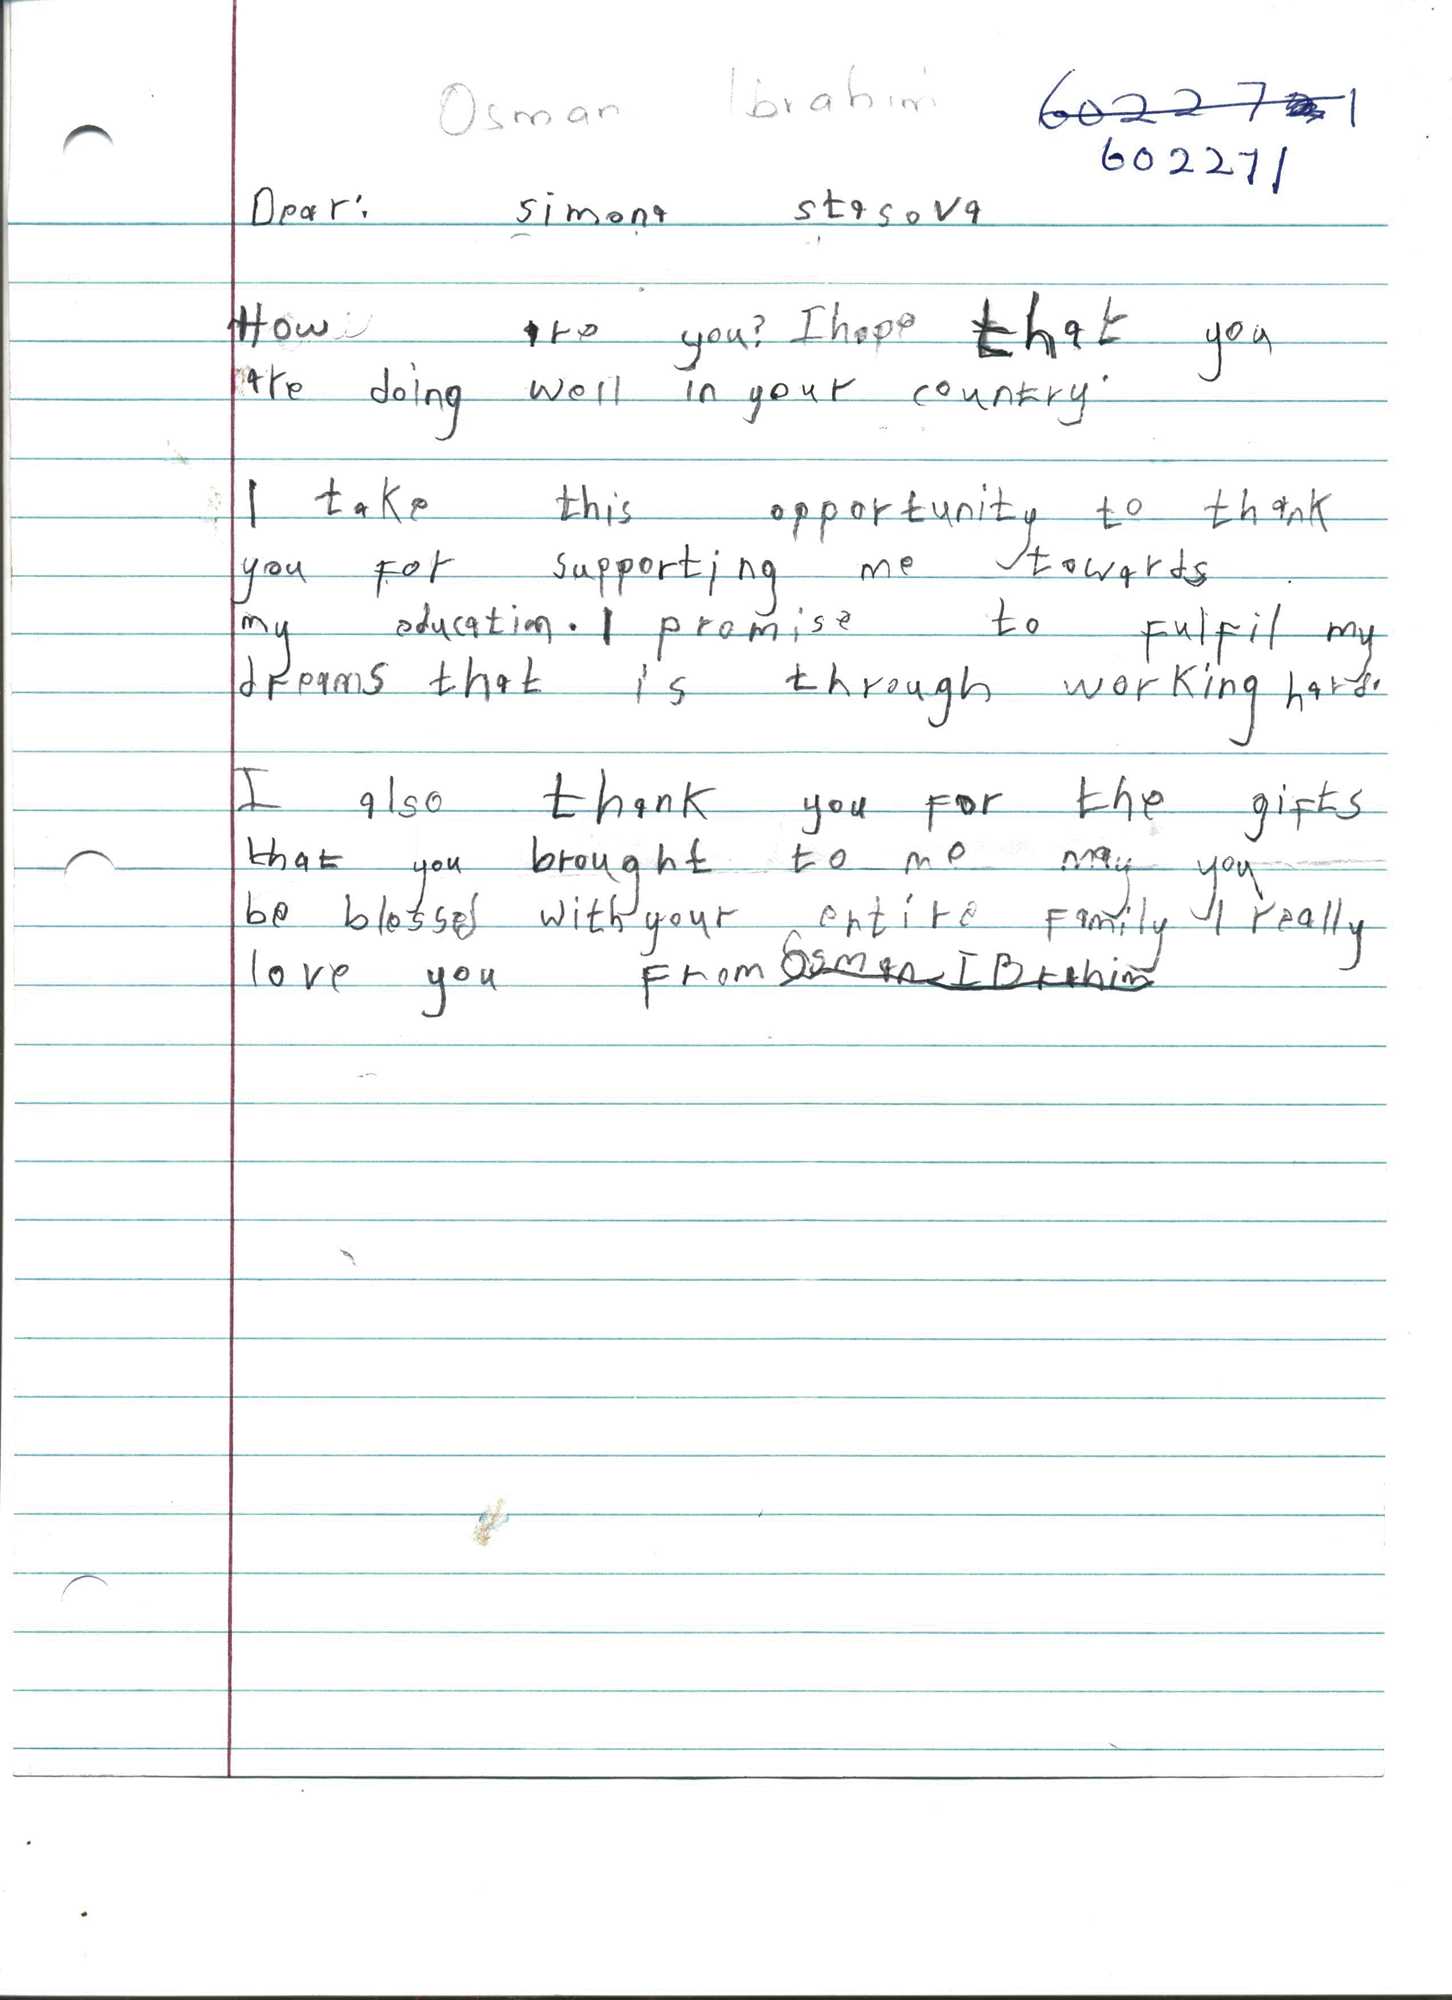 Osman Ibrahim 602271
602271
Dear: simona stasova
How are you? I hope that you
are doing well in your country.
I take this opportunity to thank
you for supporting me towards
my education. I promise to fulfil my
dreams that is through working hard.
I also thank you for the gifts
that you brought to me may you
be blessed with your entire family I really
love you from Osman IBrahim